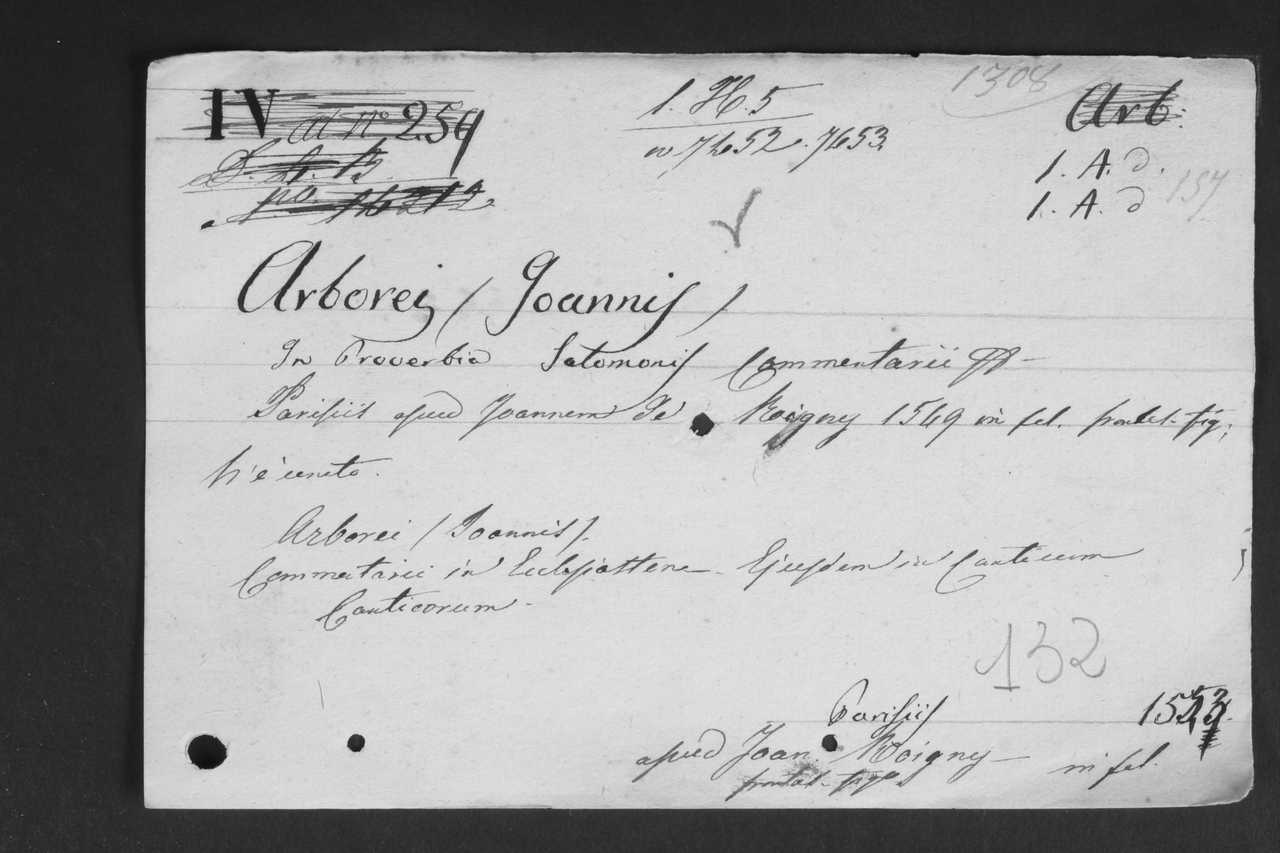 IV al nº 259
1. H. 5
1308
Arb.
nº 7652. 7653
1. A. d.
1. A. d 157
Arborei (Joannis)
In Proverbia Salomonis Commentarii
Parisiis apud Joannem de Roigny 1549 in fol. frontes. fig.
V'è unito.
Arborei (Joannis).
Commentarii in Ecclesiasten - Ejusdem in Canticum
Canticorum.
132
Parisiis 1553.
apud Joan. Roigny - in fol.
frontes. fig.